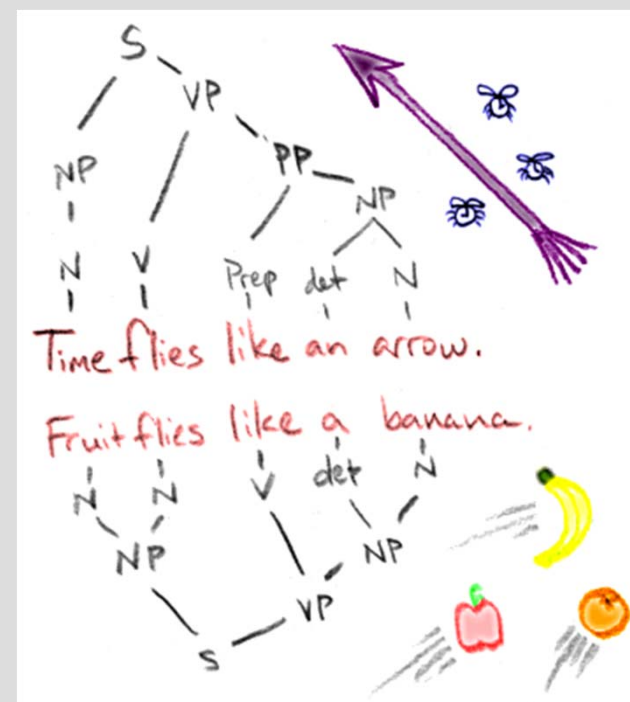 S
VP
PP
NP NP
N V Prep det N
Time flies like an arrow.
Fruit flies like a banana.
N N V det N
NP NP
VP
S